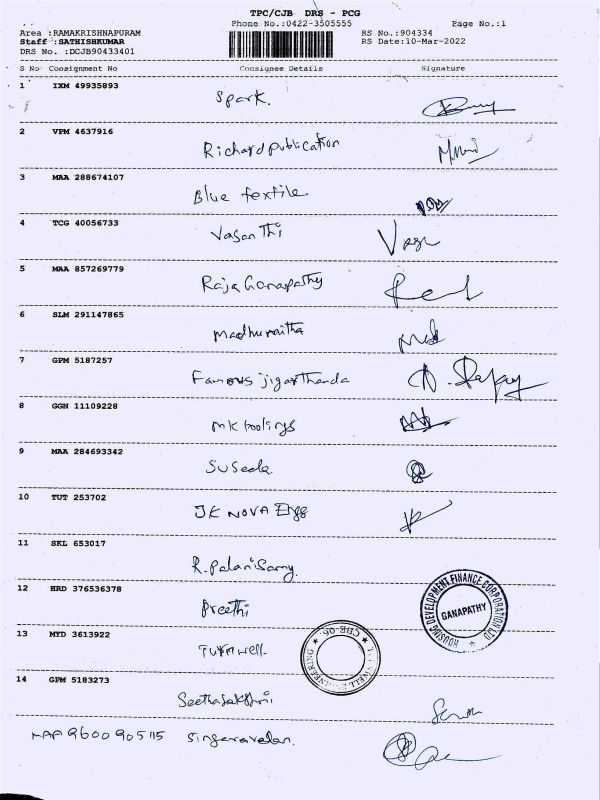 TPC/CJB DRS - PCG
Phone No.:0422-3505555 Page No.:1
Area :RAMAKRISHNAPURAM RS No.:904334
Staff :SATHISHKUMAR RS Date:10-Mar-2022
DRS No. :DCJB90433401
S No Consignment No Consignee Details Signature
1 IXM 49935893 Spark.
2 VPM 4637916 Richard publication
3 MAA 288674107 Blue textile
4 TCG 40056733 Vasanthi
5 MAA 857269779 Raja Ganapathy
6 SLM 291147865
7 GPM 5187257 Famous jigarthanda
8 GGN 11109228 mk toolings
9 MAA 284693342 Suseela
10 TUT 253702 JK NOVA Engg
11 SKL 653017 R. Palanisamy
12 HRD 376536378 Preethi
HOUSING DEVELOPMENT FINANCE CORPORATION LTD
GANAPATHY
13 MYD 3613922 Turnwell
CBE-06
14 GPM 5183273 Seethalakshmi
9600905115 Singaravelan.